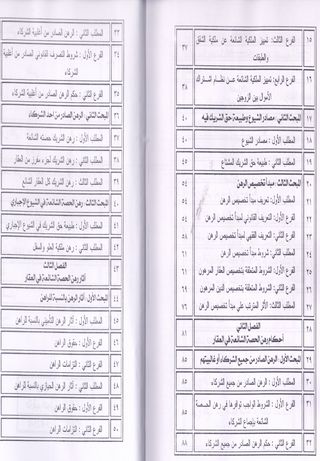 ١٥ الفرع الثالث: تمييز الملكية الشائعة عن ملكية الشقق والطبقات ٣٧
١٦ الفرع الرابع: تمييز الملكية الشائعة عن نظام اشتراك الأموال بين الزوجين ٤٠
١٧ المبحث الثاني: مصادر الشيوع وطبيعة حق الشريك فيه
١٨ المطلب الأول: مصادر الشيوع
١٩ المطلب الثاني: طبيعة حق الشريك المشتاع ٤٥
٢٠ المبحث الثالث: مبدأ تخصيص الرهن ٥٤
٢١ المطلب الأول: تعريف مبدأ تخصيص الرهن ٥٤
٢٢ الفرع الأول: التعريف القانوني لمبدأ تخصيص الرهن
٢٣ الفرع الثاني: التعريف الفقهي لمبدأ تخصيص الرهن
٢٤ المطلب الثاني: شروط مبدأ تخصيص الرهن
٢٥ الفرع الأول: الشروط المتعلقة بتخصيص العقار المرهون
٢٦ الفرع الثاني: الشروط المتعلقة بتخصيص الدين المرهون
٢٧ المطلب الثالث: الأثر المترتب على مبدأ تخصيص الرهن ٧٦
٢٨ الفصل الثاني
أحكام رهن الحصة الشائعة في العقار ٨١
٢٩ المبحث الأول: الرهن الصادر من جميع الشركاء أو غالبيتهم ٨٥
٣٠ المطلب الأول: الرهن الصادر من جميع الشركاء ٨٥
٣١ الفرع الأول: الشروط الواجب توافرها في رهن الحصة الشائعة بإجماع الشركاء ٨٥
٣٢ الفرع الثاني: حكم الرهن الصادر من جميع الشركاء ٨٨
٣٣ المطلب الثاني: الرهن الصادر من أغلبية الشركاء
٣٤ الفرع الأول: شروط التصرف القانوني الصادر من أغلبية الشركاء
٣٥ الفرع الثاني: حكم الرهن الصادر من أغلبية الشركاء
٣٦ المبحث الثاني: الرهن الصادر من أحد الشركاء
٣٧ المطلب الأول: رهن الشريك حصته الشائعة
٣٨ المطلب الثاني: رهن الشريك لجزء مفرز من العقار
٣٩ المطلب الثالث: رهن الشريك كل العقار الشائع
٤٠ المبحث الثالث: رهن الحصة الشائعة في الشيوع الإجباري
٤١ المطلب الأول: طبيعة حق الشريك في الشيوع الإجباري
٤٢ المطلب الثاني: رهن ملكية العلو والسفل
٤٣ الفصل الثالث
آثار رهن الحصة الشائعة في العقار
٤٤ المبحث الأول: آثار الرهن بالنسبة للراهن
٤٥ المطلب الأول: آثار الرهن التأميني بالنسبة للراهن
٤٦ الفرع الأول: حقوق الراهن
٤٧ الفرع الثاني: التزامات الراهن
٤٨ المطلب الثاني: آثار الرهن الحيازي بالنسبة للراهن
٤٩ الفرع الأول: حقوق الراهن
٥٠ الفرع الثاني: التزامات الراهن